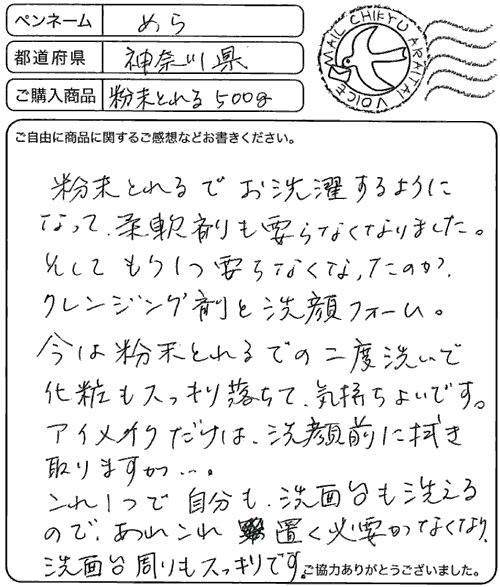 ペンネーム めら
都道府県 神奈川県
ご購入商品 粉末とれる500g
MAIL CHIKYU ARAITAI VOICE
ご自由に商品に関するご感想などお書きください。
粉末とれるでお洗濯するように
なって、柔軟剤も要らなくなりました。
そしてもう1つ要らなくなったのが、
クレンジング剤と洗顔フォーム。
今は粉末とれるでの二度洗いで
化粧もスッキリ落ちて、気持ちよいです。
アイメイクだけは、洗顔前に拭き
取りますが…。
これ1つで自分も、洗面台も洗える
ので、あれこれ置く必要がなくなり、
洗面台周りもスッキリです。
ご協力ありがとうございました。